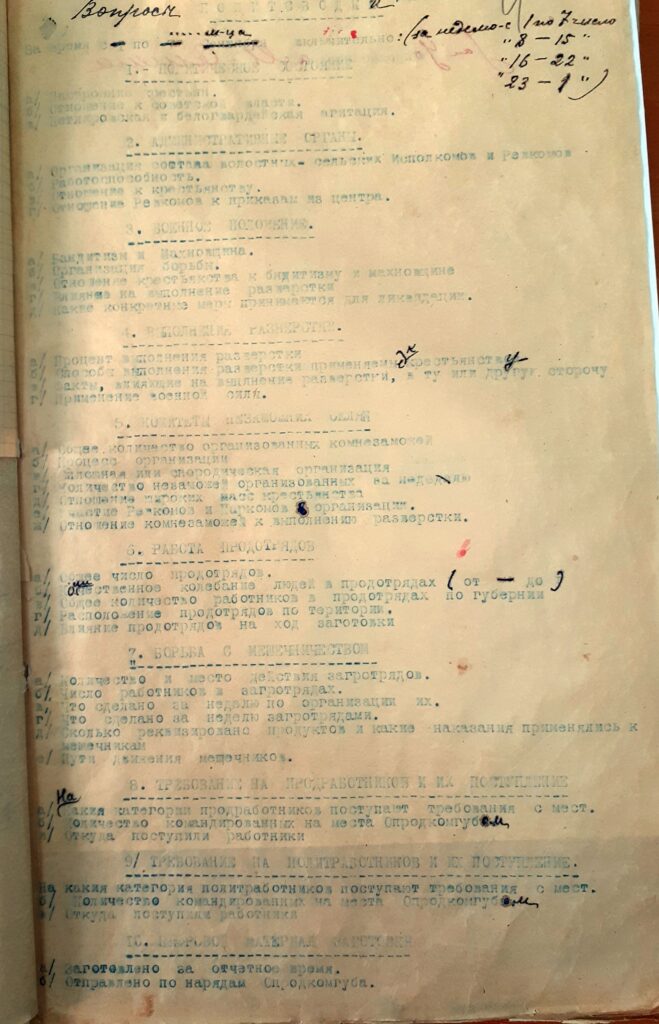 Вопросы
ПОЛИТСВОДКИ
За время с по м-ца включительно: (за неделю - с 1 по 7 число
" 8 - 15 "
" 16 - 22 "
" 23 - 1 ")
1.- ПОЛИТИЧЕСКОЕ СОСТОЯНИЕ
а/ Настроение крестьян.
б/ Отношение к советской власти.
в/ Петлюровская и белогвардейская агитация.
2. АДМИНИСТРАТИВНЫЕ ОРГАНЫ.
а/ Организация состава волостных- сельских Исполкомов и Ревкомов
б/ Работоспособность.
в/ Отношение к крестьянству.
г/ Отношение Ревкомов к приказам из центра.
3. ВОЕННОЕ ПОЛОЖЕНИЕ.
а/ Бандитизм и Махновщина.
б/ Организация борьбы.
в/ Отношение крестьянства к бндитизму и махновщине
г/ Влияние на выполнение разверстки
д/ Какие конкретные меры принимаются для ликвидации.
4. ВЫПОЛНЕНИЕ РАЗВЕРСТКИ.
а/ Процент выполнения разверстки
б/ Способы выполнения разверстки применяемы к крестьянству
в/ Факты, влияющие на выплнение разверстки, в ту или другую сторону
г/ Применение военной силы.
5. КОМИТЕТЫ НЕЗАМОЖНИХ СЕЛЯН
а/ Общее количество организованных комнезаможей
б/ Процесс организации
в/ Сплошная или спородическая организация
г/ Количество незаможей организованных за неделю
д/ Отношение широких масс крестьянства
е/ Участие Ревкомов и Паркомов в организации.
ж/ Отношение комнезаможей к выполнению разверстки.
6. РАБОТА ПРОДОТРЯДОВ
а/ Общее число продотрядов.
б/ колебание людей в продотрядах ( от — до )
в/ Общее количество работников в продотрядах по губернии
г/ Расположение продотрядов по територии.
д/ Влияние продотрядов на ход заготовки
7. БОРЬБА С МЕШЕЧНИЧЕСТВОМ
а/ Количество и место действия загротрядов.
б/ Число работников в загротрядах.
в/ Что сделано за неделю по организации их.
г/ Что сделано за неделю загротрядами.
д/ Сколько реквизировано продуктов и какие наказания применялись к
мешечникам
е/ Пути движения мешечников.
8. ТРЕБОВАНИЕ НА ПРОДРАБОТНИКОВ И ИХ ПОСТУПЛЕНИЕ
а/ На какия категории продработников поступают требования с мест.
б/ Количество командированных на места Опродкомгубом
в/ Откуда поступили работники
9/ ТРЕБОВАНИЕ НА ПОЛИТРАБОТНИКОВ И ИХ ПОСТУПЛЕНИЕ.
На какия категория политработников поступают требования с мест.
б/ Количество командированных на места Опродкомгубом
в/ Откуда поступили работники
10. ЦИФРОВОЙ МАТЕРИАЛ ЗАГОТОВКИ
а/ Заготовлено за отчетное время.
б/ Отправлено по нарядам Опродкомгуба.